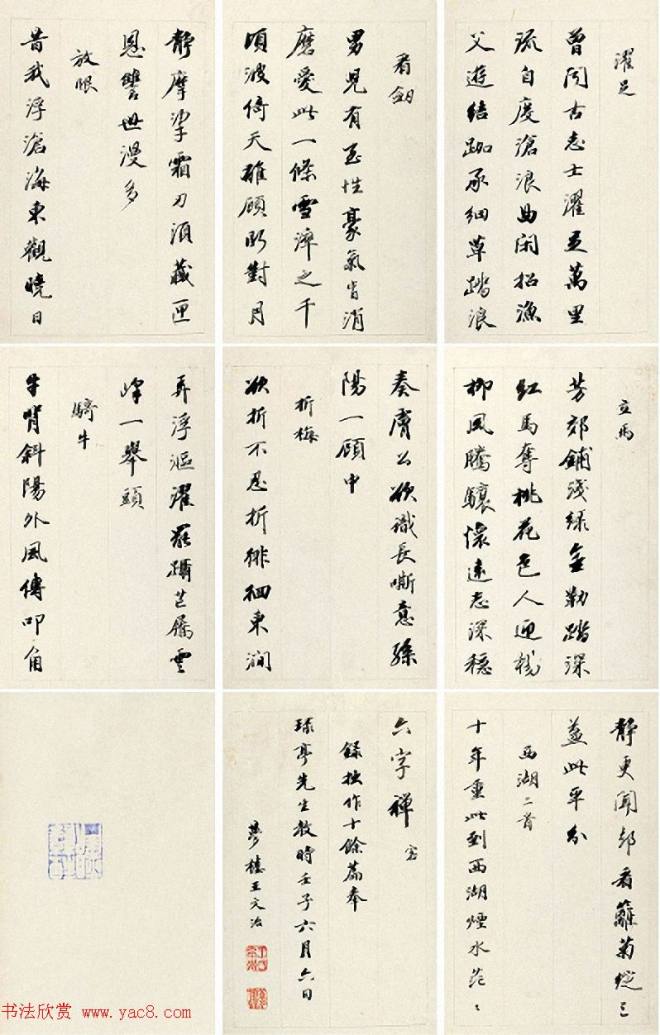 濯足
曾聞古志士濯足萬里
流自度滄浪曲閑招漁
父遊結跏承細草踏浪
看劒
男兒有至性豪氣肯消
磨愛此一條雪淬之千
頃波倚天雄顧盼對月
靜摩挲霜刃須藏匣
恩讐世漫多
放眼
昔我浮滄海東觀曉日
立馬
芳郊鋪淺綠金勒踏深
紅馬奪桃花色人迎楊
柳風騰驤懷遠志深穩
奏膚公欲識長嘶意孫
陽一顧中
折梅
欲折不忍折徘徊東澗
弄浮漚濯罷躡芒屩雲
峰一舉頭
騎牛
牛背斜陽外風傳叩角
靜更聞郤看籬菊綻三
益此平分
西湖二首
十年重此到西湖煙水茫〻
六字禪
錄拙作十餘篇奉
球亭先生教時壬子六月六日
夢樓王文治
书法欣赏 www.yac8.com